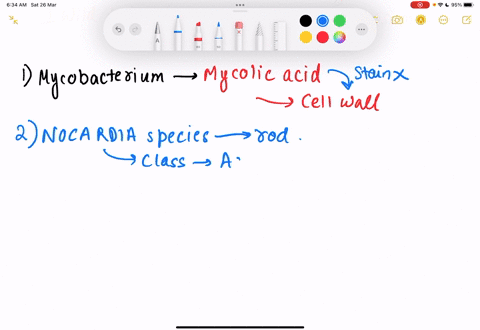 6:34 AM Sat 26 Mar
95%
1) Mycobacterium → Mycolic acid Stain x
→ Cell wall
2) NOCARDIA species → rod .
→ Class → A.